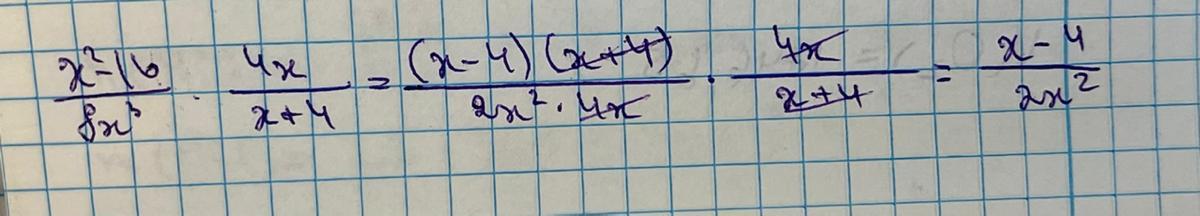 (x²-16)/(8x³) · (4x)/(x+4) = ((x-4)(x+4))/(2x²·4x) · (4x)/(x+4) = (x-4)/(2x²)